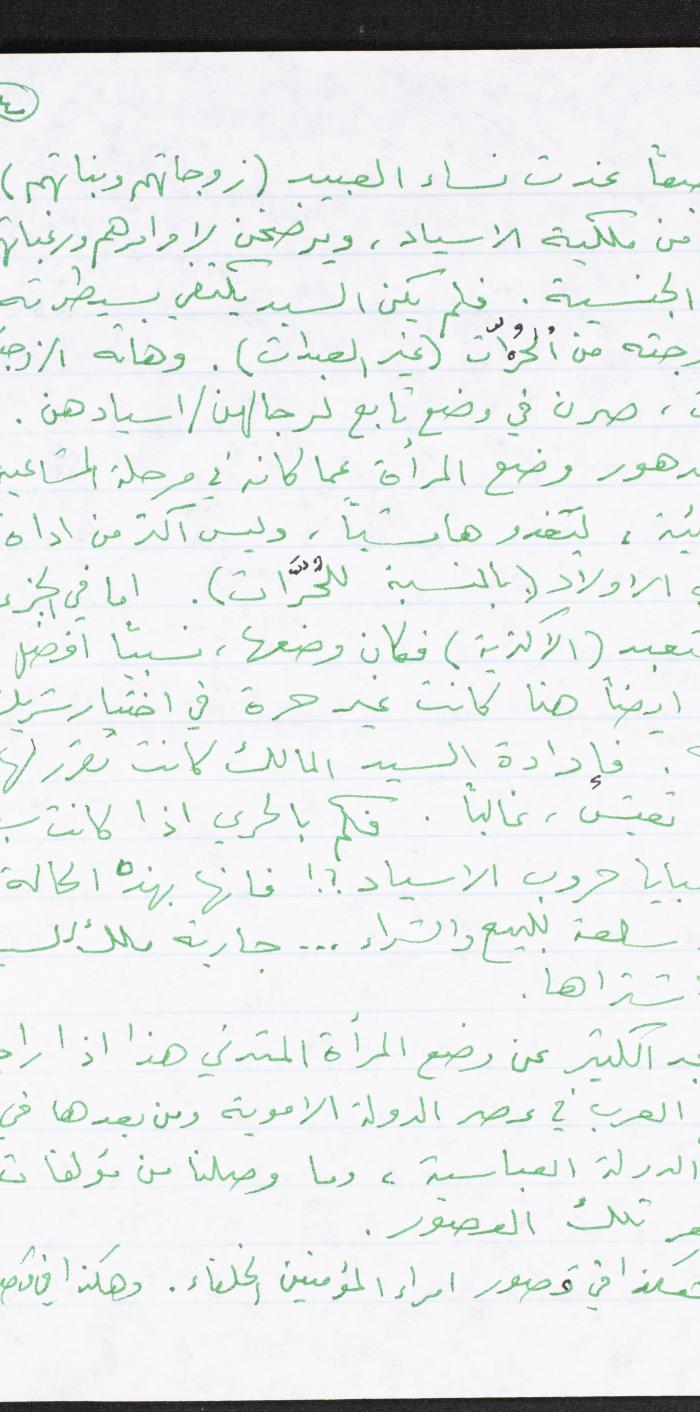 غدت نساء العبيد (زوجاتهم وبناتهم)
من ملكية الاسياد، ويرضخن لاوامرهم ورغباته
الجنسية. فلم يكن السيد يكتفي بسيطرته
من الحُرّات (غير العبدات). وهاته
، صرن في وضع تابع لرجالهن/اسيادهن.
وضع المرأة عما كانه في مرحلة المشاعية
، لتغدو هامشياً، وليس اكثر من اداة
الاولاد (بالنسبة للحُرّات). اما في الجزء
(الاكثرية) فكان وضعها، نسبياً افضل
ايضاً هنا كانت غير حرة في اختيار
. فإرادة السيد المالك كانت تقرر لها
، غالباً. فكم بالحري اذا كانت
سبايا حروب الاسياد؟! فانها بهذه الحالة
سلعة للبيع والشراء ... جارية ملك
اشتراها.
الكثير عن وضع المرأة المتدني هذا اذا
العرب في عصر الدولة الاموية ومن بعدها في
الدولة العباسية، وما وصلنا من مؤلفات
تلك العصور.
هكذا في قصور امراء المؤمنين الخلفاء. وهكذا في